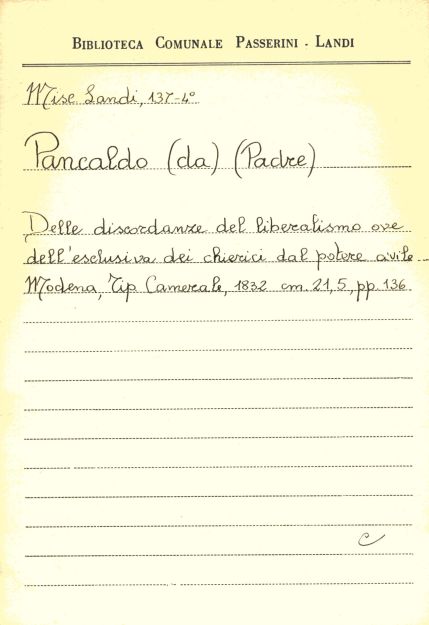 BIBLIOTECA COMUNALE PASSERINI - LANDI
Misc Landi, 137-4º
Pancaldo (da) (Padre)
Delle discordanze del liberalismo ove
dell'esclusiva dei chierici dal potere civile
Modena, Tip. Camerale, 1832 cm. 21,5, pp. 136
C